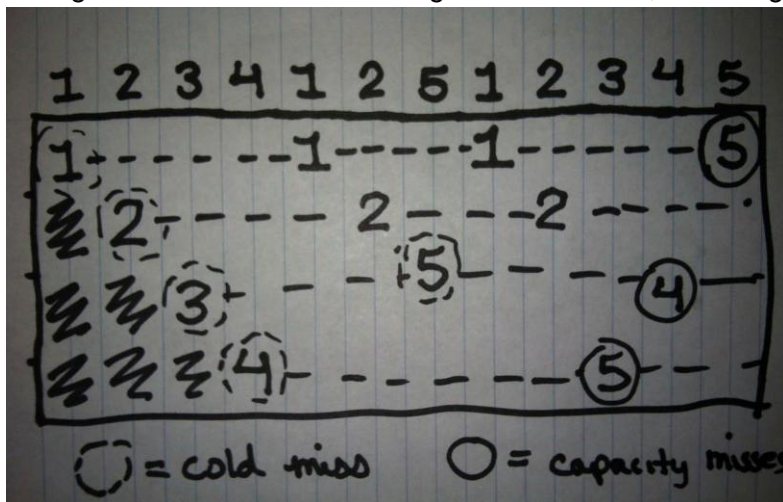 1 2 3 4 1 2 5 1 2 3 4 5
1 1 1 5
2 2 2
3 5 4
4 5
= cold miss = capacity misses